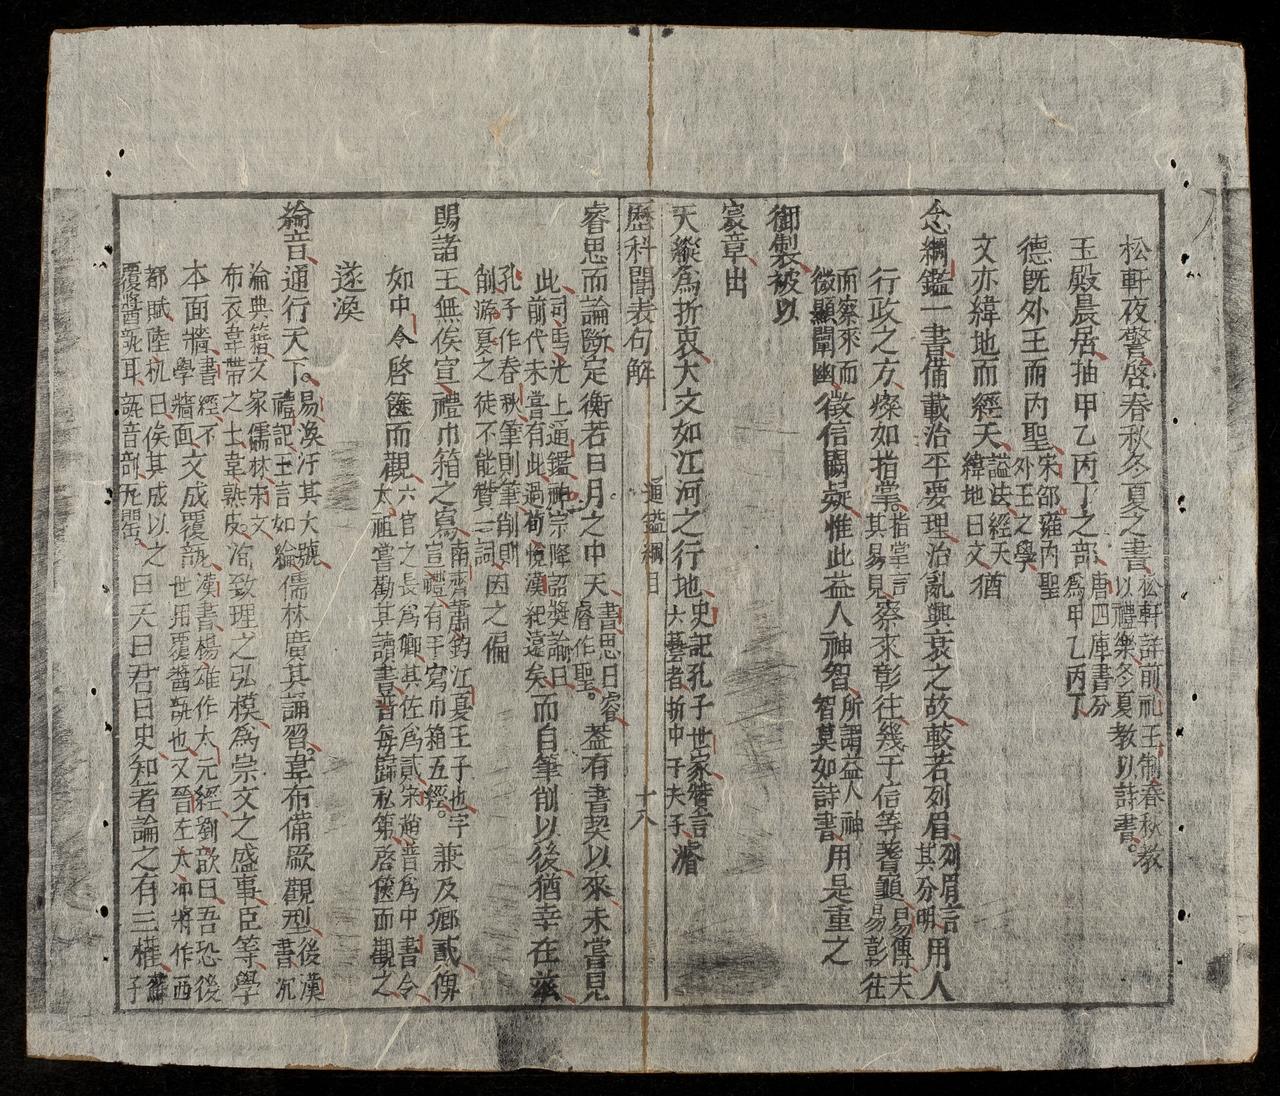 松軒夜警啓春秋冬夏之書松軒詳前礼王制春秋教以禮樂冬夏教以詩書
玉殿晨居抽甲乙丙丁之部唐四庫書分為甲乙丙丁
德既外王而內聖宋邵雍內聖外王之學
文亦緯地而經天謚法經天緯地曰文猶
念綱鑑一書備載治平要理治亂興衰之故較若列眉列眉言其分明用人
行政之方燦如指掌指掌言其易見察來彰往幾于信等蓍龜易傳夫易彰往
而察來而微顯闡幽徵信闕疑惟此益人神智所謂益人神智莫如詩書用是重之
御製被以
宸章出
天縱為折衷大文如江河之行地史記孔子世家贊言六藝者折中于夫子濬
歷科閫表句解
通鑑綱目
十八
睿思而論斷定衡若日月之中天書思曰睿睿作聖蓋有書契以來未嘗見
此司馬光上通鑑神宗降詔奬諭曰此前代未嘗有此過荀悅漢紀遠矣而自筆削以後猶幸在茲
孔子作春秋筆則筆削則削游夏之徒不能贊一詞因之偏
賜諸王無俟宣禮巾箱之寫南齊蕭鈞江夏王子也字宣禮有手寫巾箱五經兼及鄉貳俾
如中令啓篋而觀六官之長為卿其佐為貳宋趙普為中書令太祖嘗勸其讀書普每歸私第啓篋而觀之
遂渙
綸音通行天下易渙汗其大號禮記王言如綸儒林廣其誦習韋布備厥觀型後漢書沉
淪典籍文家儒林宋文布衣韋帶之士韋熟皮洽致理之弘模為崇文之盛事臣等學
本面牆書經不學牆面文成覆瓿漢書楊雄作太元經劉歆曰吾恐後世用覆醬瓿也又晉左太冲將作西
都賦陸机曰俟其成以之覆醬瓿耳瓿音剖瓦罌曰天曰君曰史知若論之有三權蘇子